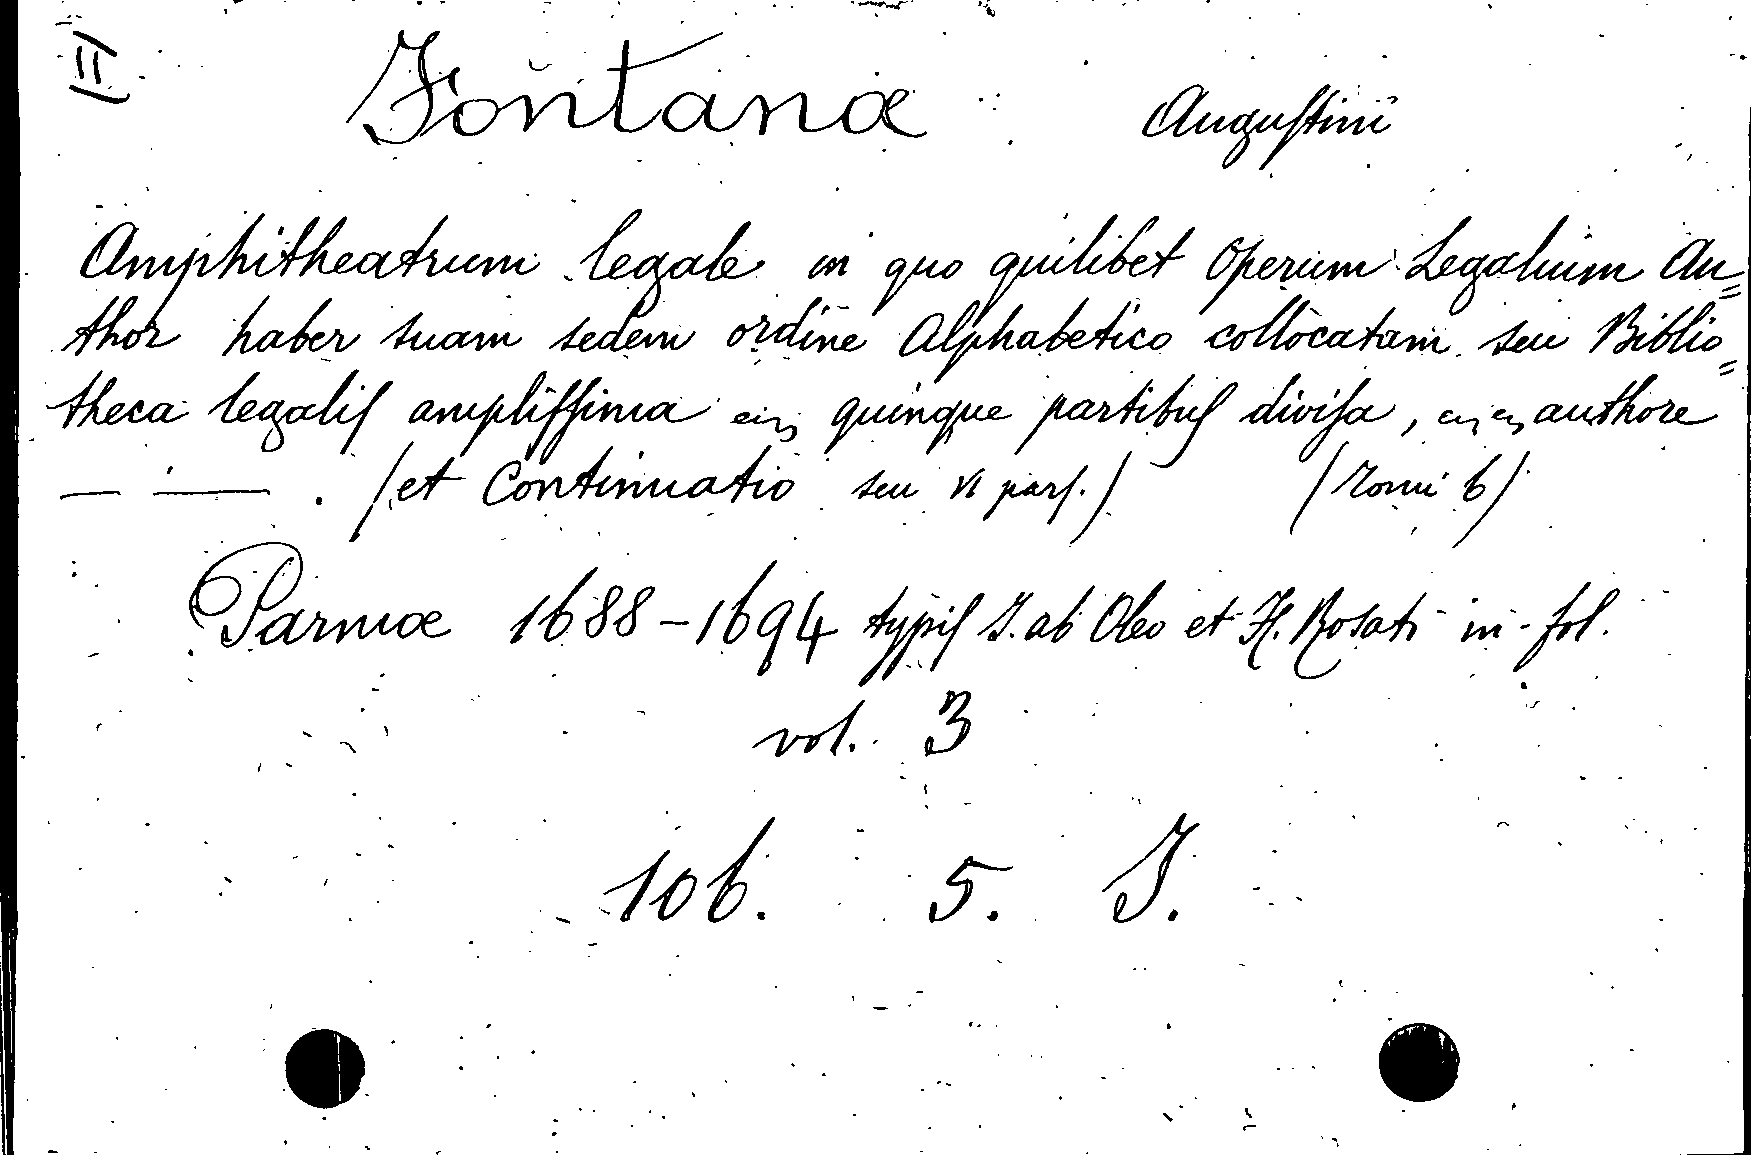 II
Fontanæ Auguſtini
Amphitheatrum legale in quo quilibet Operum Legalium Au=
thor haber suam sedem ordine Alphabetico collocatam seu Biblio=
theca legaliſ ampliſſima quinque partibuſ diviſa, authore
— — . (et Continuatio seu VI parſ.) (Tomi 6)
Parmæ 1688-1694 typiſ J. ab Oleo et H. Rosati in-fol.
vol. 3
106. 5. I.